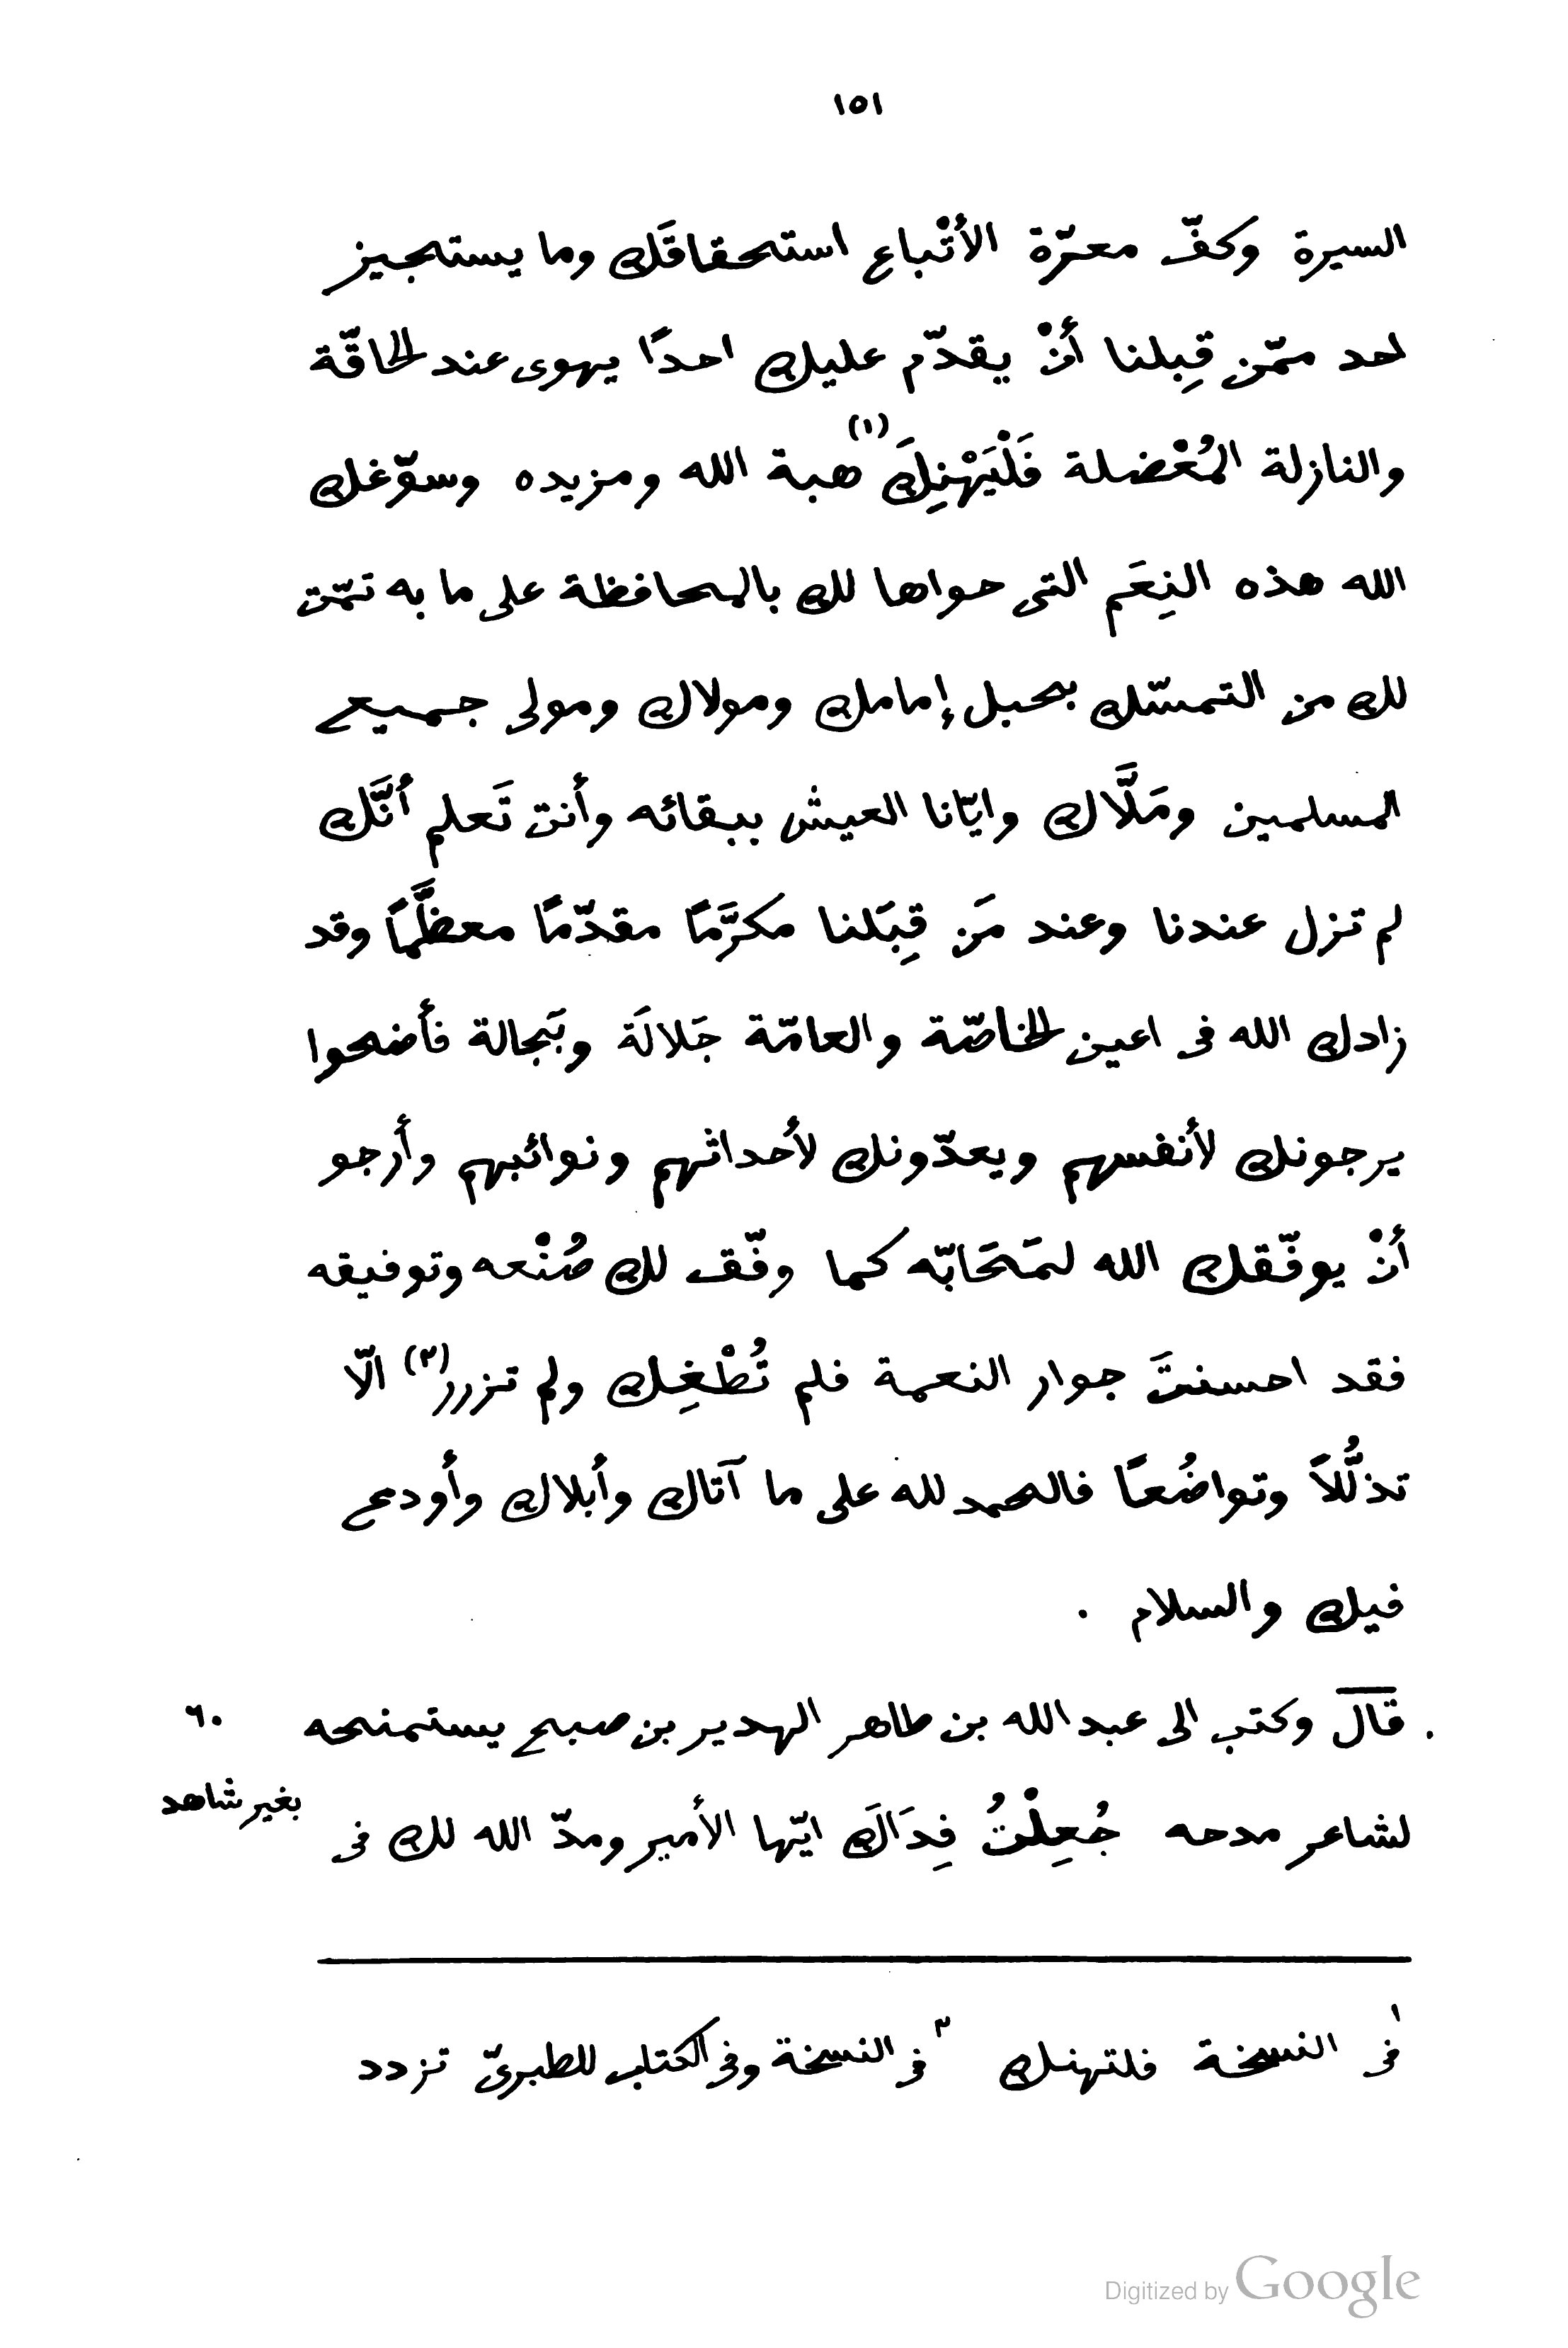 ١٥١
السيرة وكفّ معرّة الأتْباع استحقاقَك وما يستجيز
احد ممّن قِبلنا أنْ يقدّم عليك احدًا يهوى عند الحاقّة
والنازلة المُعْضلة فَلْيَهْنِكَ (١) هبة الله ومزيده وسوّغك
الله هذه النِعَم التى حواها لك بالمحافظة على ما به تمّت
لك من التمسّك بحبل إمامك ومولاك ومولى جميع
المسلمين ومَلَّاك وايّانا العيش ببقائه وأنت تَعلم أنَّك
لم تزل عندنا وعند مَن قِبَلنا مكرَّمًا مقدّمًا معظَّمًا وقد
زادك الله فى اعين الخاصّة والعامّة جَلالَة وبَجالة فأضحوا
يرجونك لأنفسهم ويعدّونك لأحداثهم ونوائبهم وأرجو
أنْ يوفّقك الله لمَحَابّه كما وفّق لك صُنْعه وتوفيقه
فقد احسنتَ جوار النعمة فلم تُطْغِك ولم تزرر (٢) الّا
تذلُّلاً وتواضُعًا فالحمد لله على ما آتاك وأبلاك وأودع
فيك والسلام .
. قال وكتب الى عبد الله بن طاهر الهدير بن صبح يستمنحه ٦٠
لشاعر مدحه جُعِلْتُ فِدَاكَ ايّها الأمير ومدّ الله لك فى
بغير شاهد
١ فى النسخة فلتهنك ٢ فى النسخة وفى الكتاب للطبرىّ تزدد
Digitized by Google